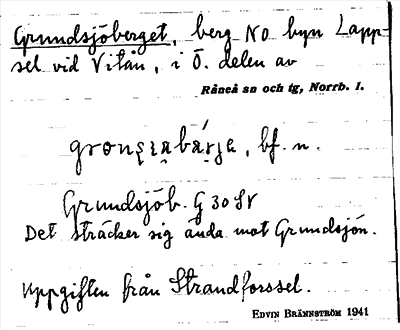 Grundsjöberget, berg NO byn Lapp-
sel vid Vitån, i Ö. delen av
Råneå sn och tg, Norrb. l.
bf. n.
Grundsjöb. G 30 SV
Det sträcker sig ända mot Grundsjön.
Uppgiften från Strandforssel.
EDVIN BRÄNNSTRÖM 1941